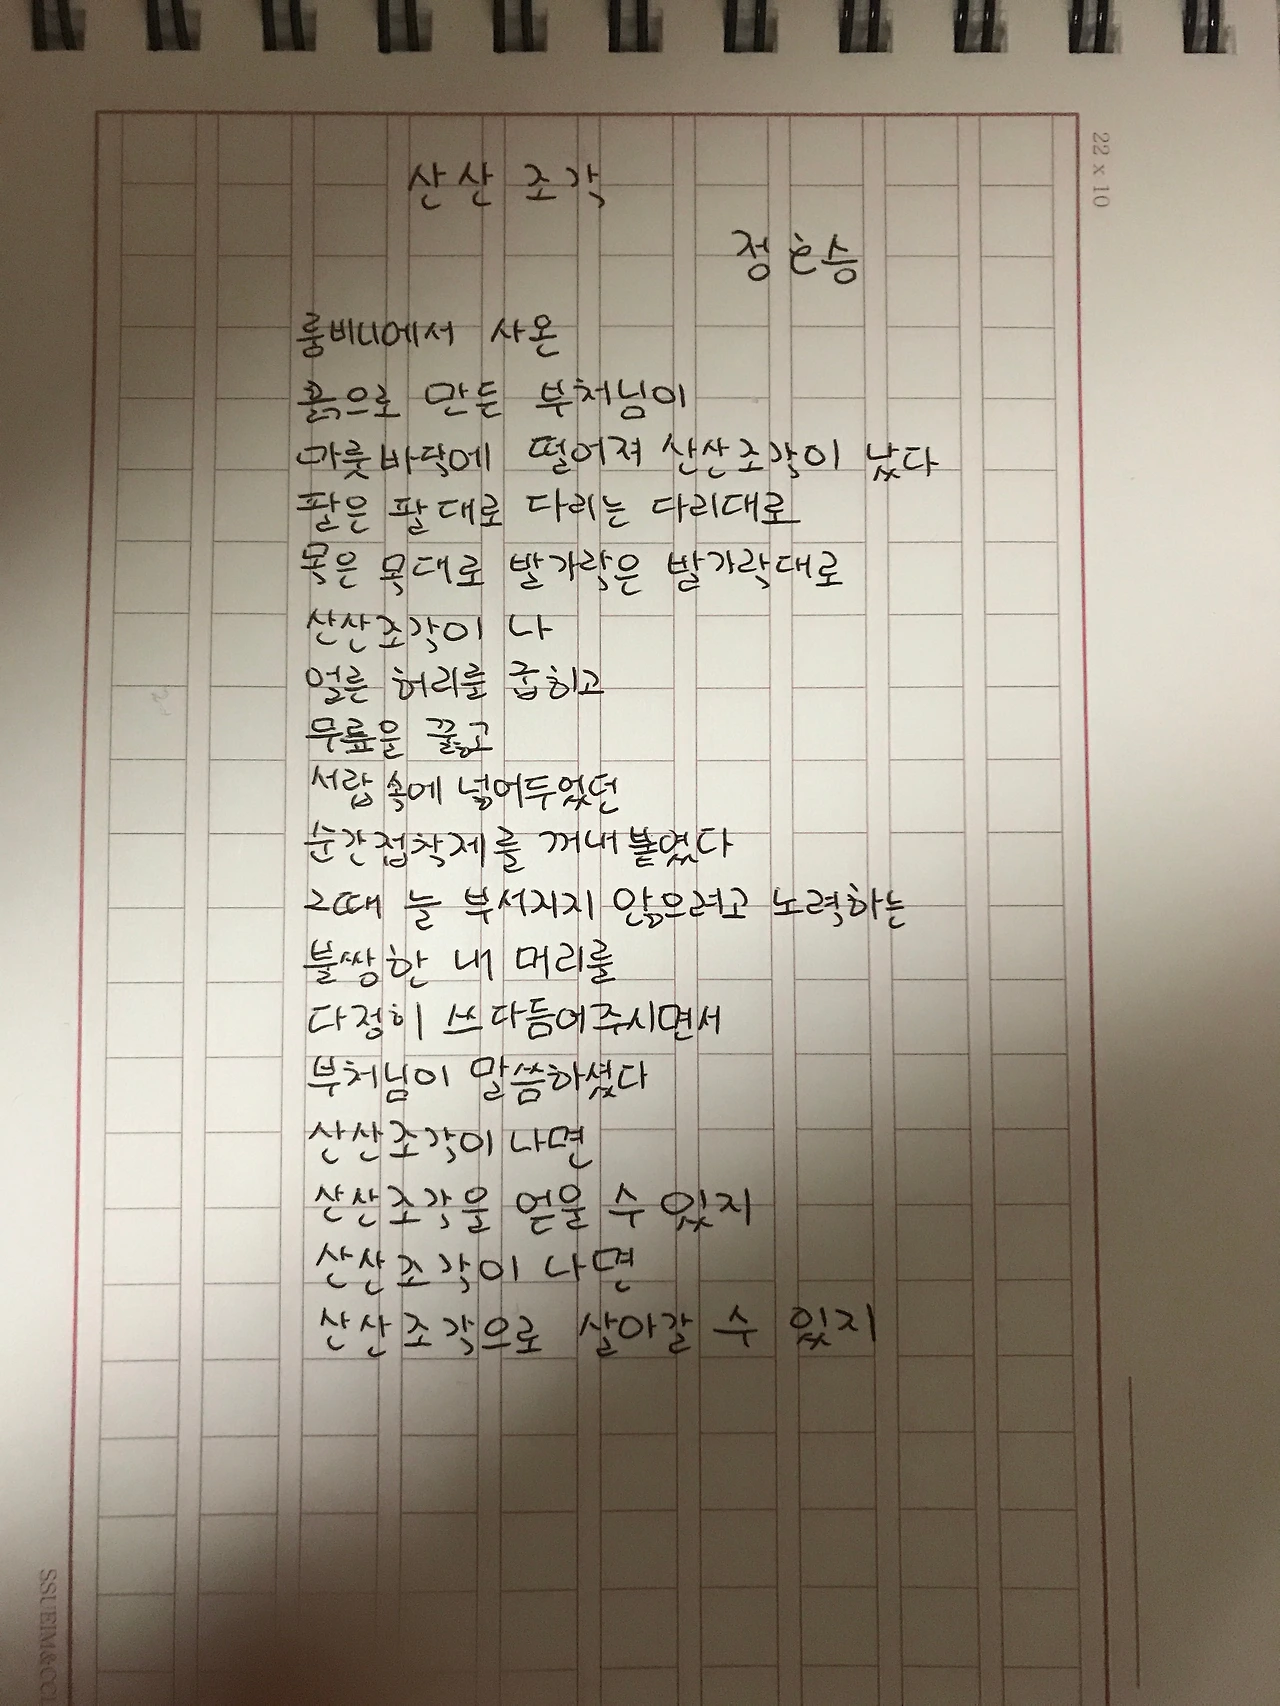 산산조각
정호승
22 x 10
룸비니에서 사온
흙으로 만든 부처님이
마룻바닥에 떨어져 산산조각이 났다
팔은 팔대로 다리는 다리대로
목은 목대로 발가락은 발가락대로
산산조각이 나
얼른 허리를 굽히고
무릎을 꿇고
서랍 속에 넣어두었던
순간접착제를 꺼내 붙였다
그때 늘 부서지지 않으려고 노력하는
불쌍한 내 머리를
다정히 쓰다듬어주시면서
부처님이 말씀하셨다
산산조각이 나면
산산조각을 얻을 수 있지
산산조각이 나면
산산조각으로 살아갈 수 있지